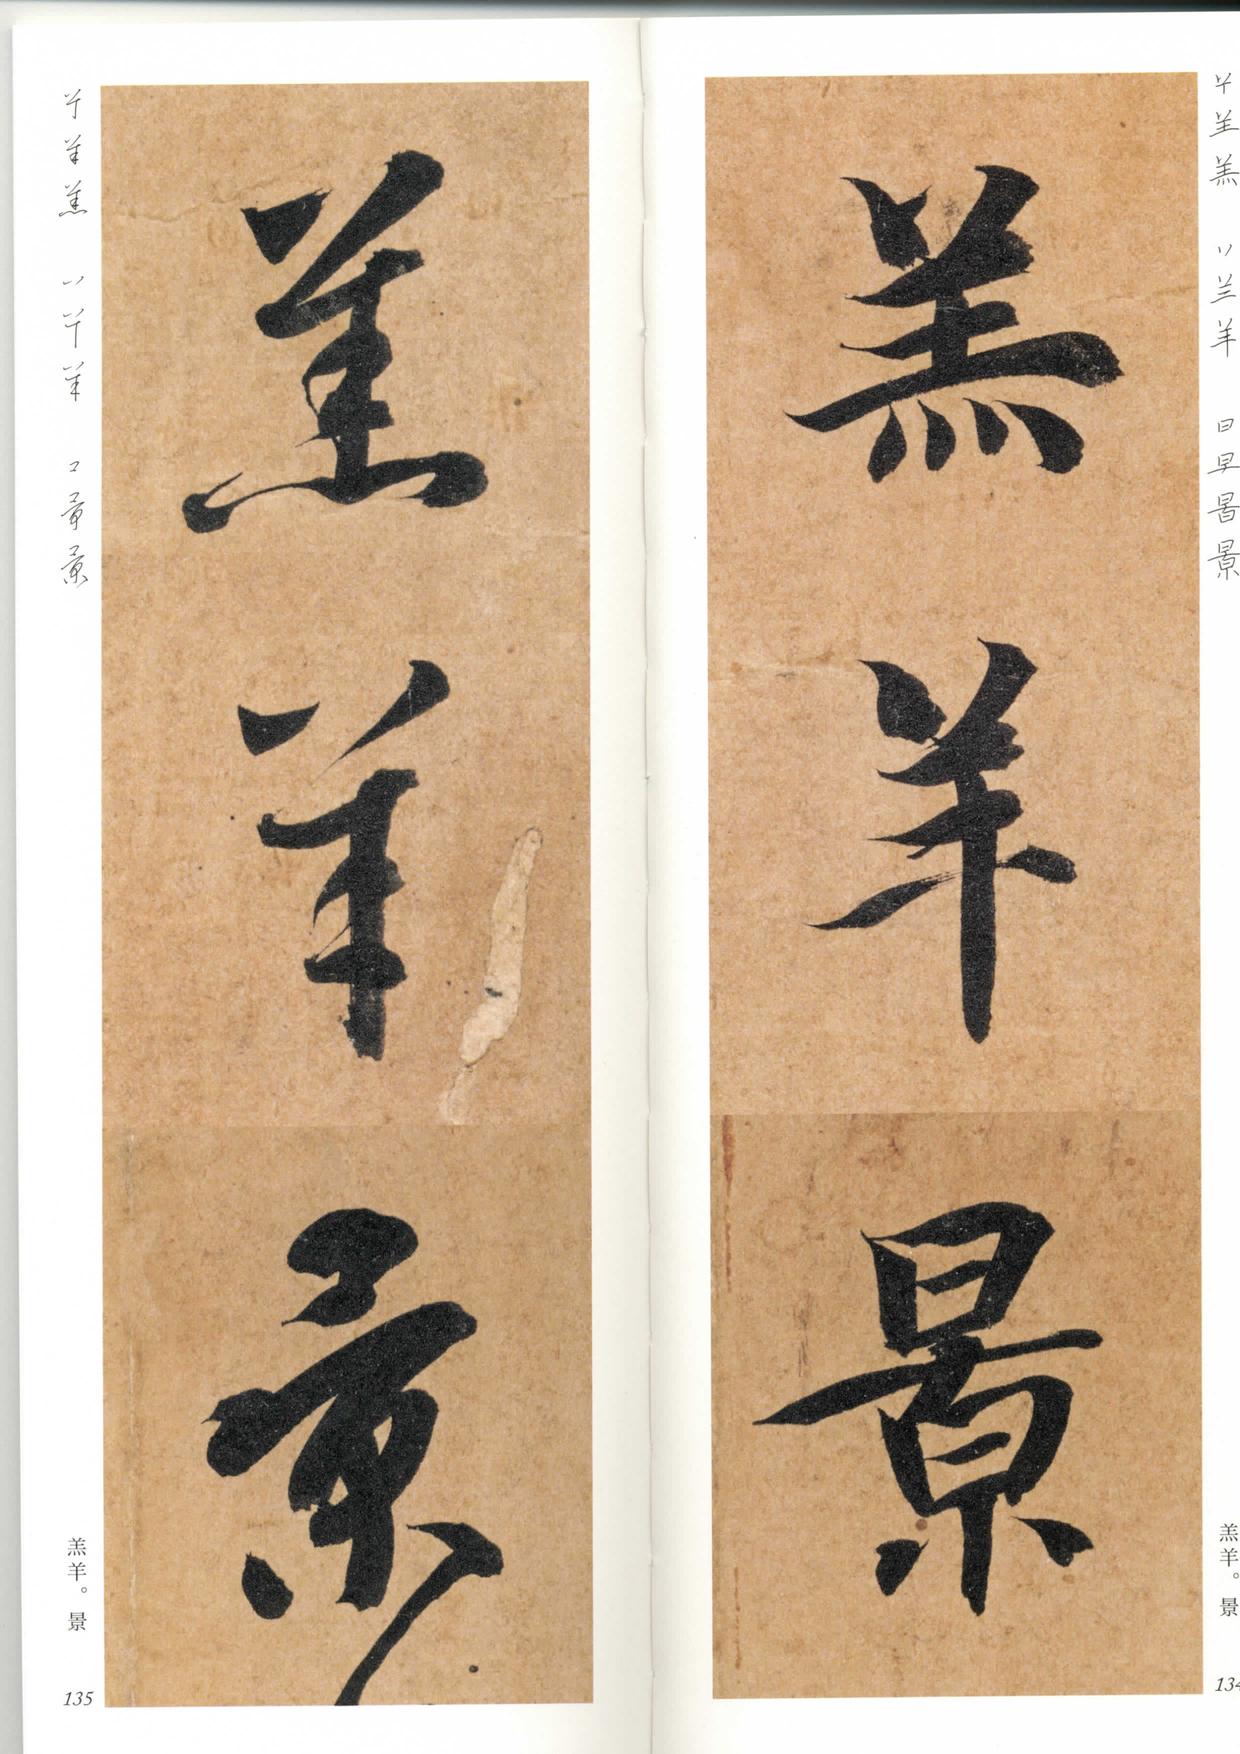 羔羊景
羔羊。景
134
羔羊景
羔羊。景
135